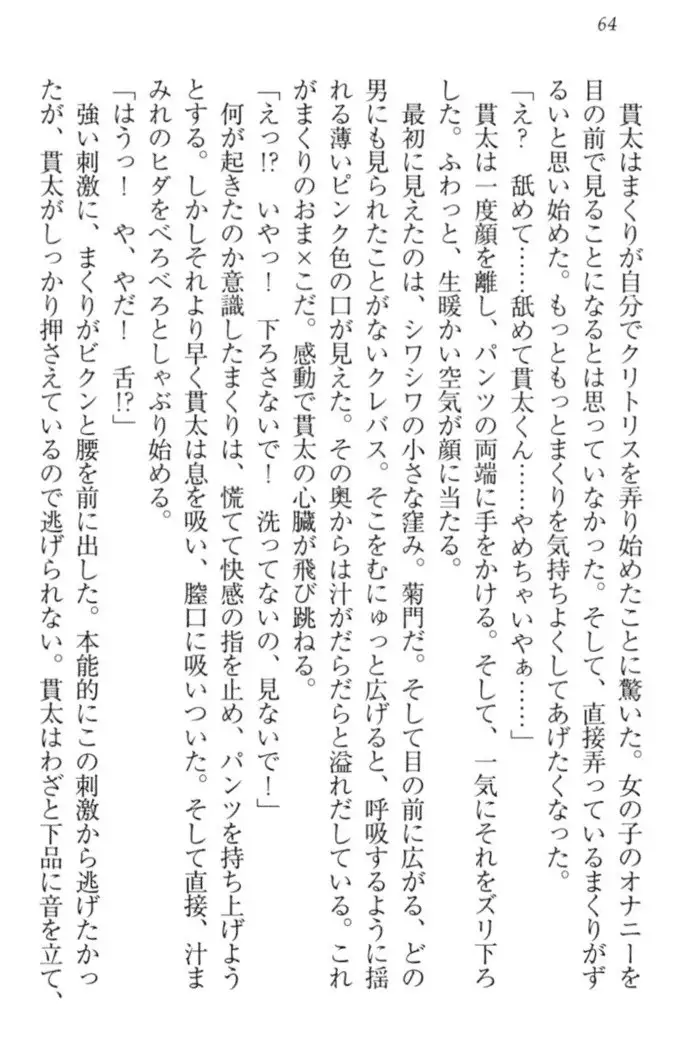 64
貫太はまくりが自分でクリトリスを弄り始めたことに驚いた。女の子のオナニーを
目の前で見ることになるとは思っていなかった。そして、直接弄っているまくりがず
るいと思い始めた。もっともっとまくりを気持ちよくしてあげたくなった。
「え？　舐めて……舐めて貫太くん……やめちゃいやぁ……」
貫太は一度顔を離し、パンツの両端に手をかける。そして、一気にそれをズリ下ろ
した。ふわっと、生暖かい空気が顔に当たる。
最初に見えたのは、シワシワの小さな窪み。菊門だ。そして目の前に広がる、どの
男にも見られたことがないクレバス。そこをむにゅっと広げると、呼吸するように揺
れる薄いピンク色の口が見えた。その奥からは汁がだらだらと溢れだしている。これ
がまくりのおま×こだ。感動で貫太の心臓が飛び跳ねる。
「えっ!?　いやっ！　下ろさないで！　洗ってないの、見ないで！」
何が起きたのか意識したまくりは、慌てて快感の指を止め、パンツを持ち上げよう
とする。しかしそれより早く貫太は息を吸い、膣口に吸いついた。そして直接、汁ま
みれのヒダをべろべろとしゃぶり始める。
「はうっ！　や、やだ！　舌!?」
強い刺激に、まくりがビクンと腰を前に出した。本能的にこの刺激から逃げたかっ
たが、貫太がしっかり押さえているので逃げられない。貫太はわざと下品に音を立て、